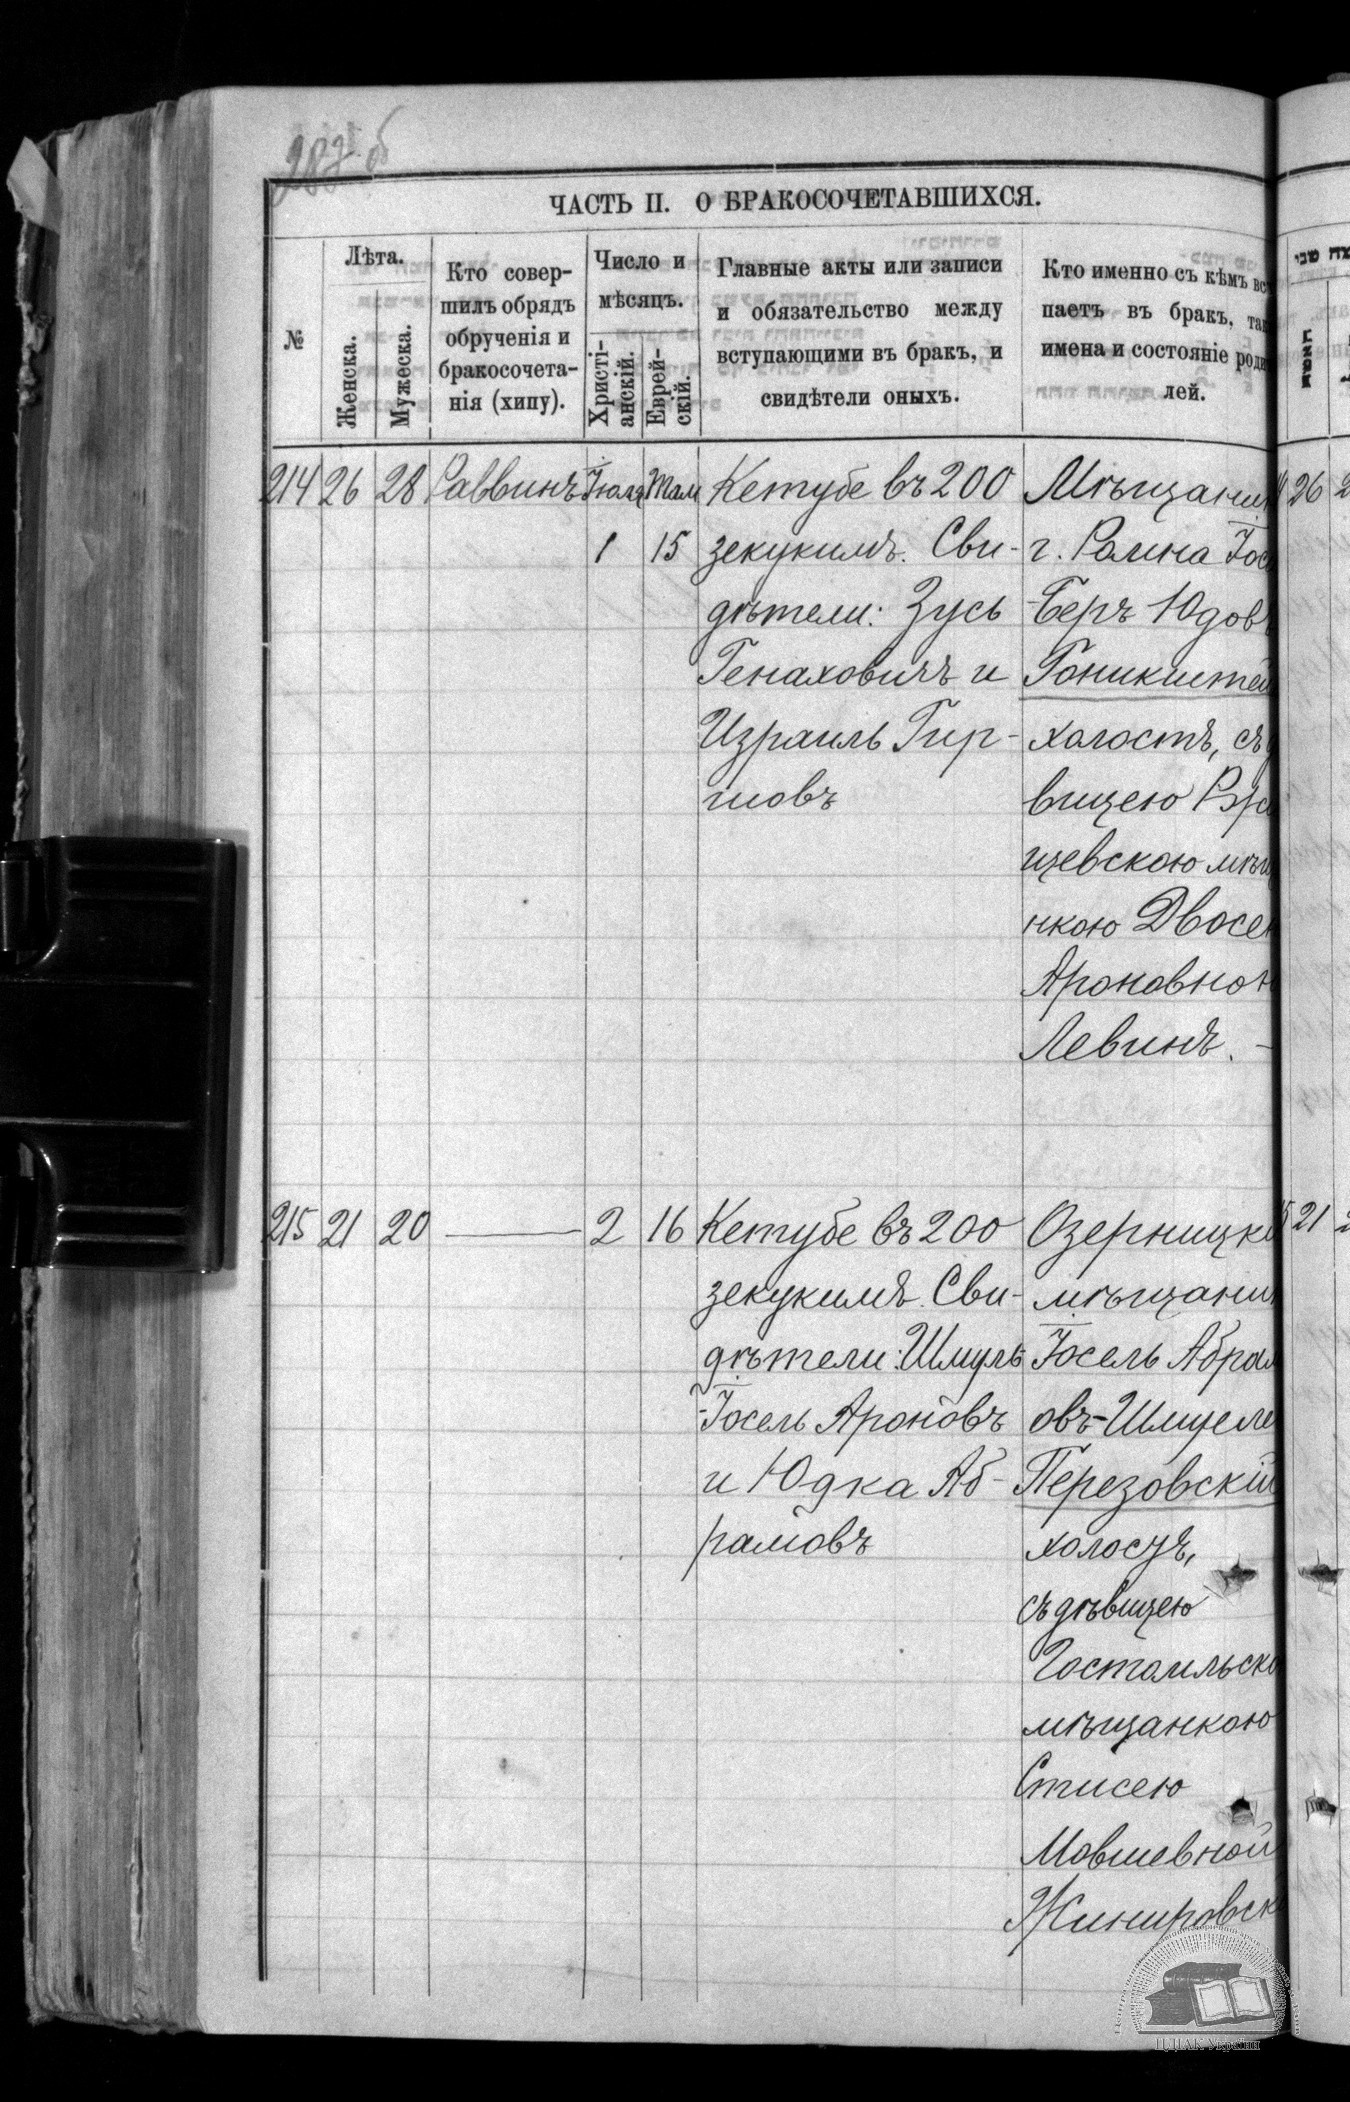 287 об
ЧАСТЬ II. О БРАКОСОЧЕТАВШИХСЯ.
№
Лѣта.
Женска.
Мужеска.
Кто совер-
шилъ обрядъ
обрученія и
бракосочета-
нія (хипу).
Число и
мѣсяцъ.
Христі-
анскій.
Еврей-
скій.
Главные акты или записи
и обязательство между
вступающими въ бракъ, и
свидѣтели оныхъ.
Кто именно съ кѣмъ вст
паетъ въ бракъ, так
имена и состояніе роди
лей.
214 26 28 Раввинъ Іюля Там
1 15
Кетубе въ 200
зекукимъ. Сви-
дѣтели: Зусь
Генаховичъ и
Израиль Гир-
шовъ
Мѣщанин
г. Ромна Іос
-Беръ Юдов
Гоникштей
холостъ, съ д
вицею Ржи
щевскою мѣщ
нкою Двосе
Ароновною
Левинъ. -
26
215 21 20 — 2 16
Кетубе въ 200
зекукимъ. Сви-
дѣтели: Шмуль-
-Іосель Ароновъ
и Юдка Аб-
рамовъ
Озерницкі
мѣщанин
Іосель Абрам
овъ-Шмуеле
Перезовскій
холостъ,
съ дѣвицею
Гостомльско
мѣщанкою
Стисею
Мовшевной
Жинировск
21
ЦДІАК України